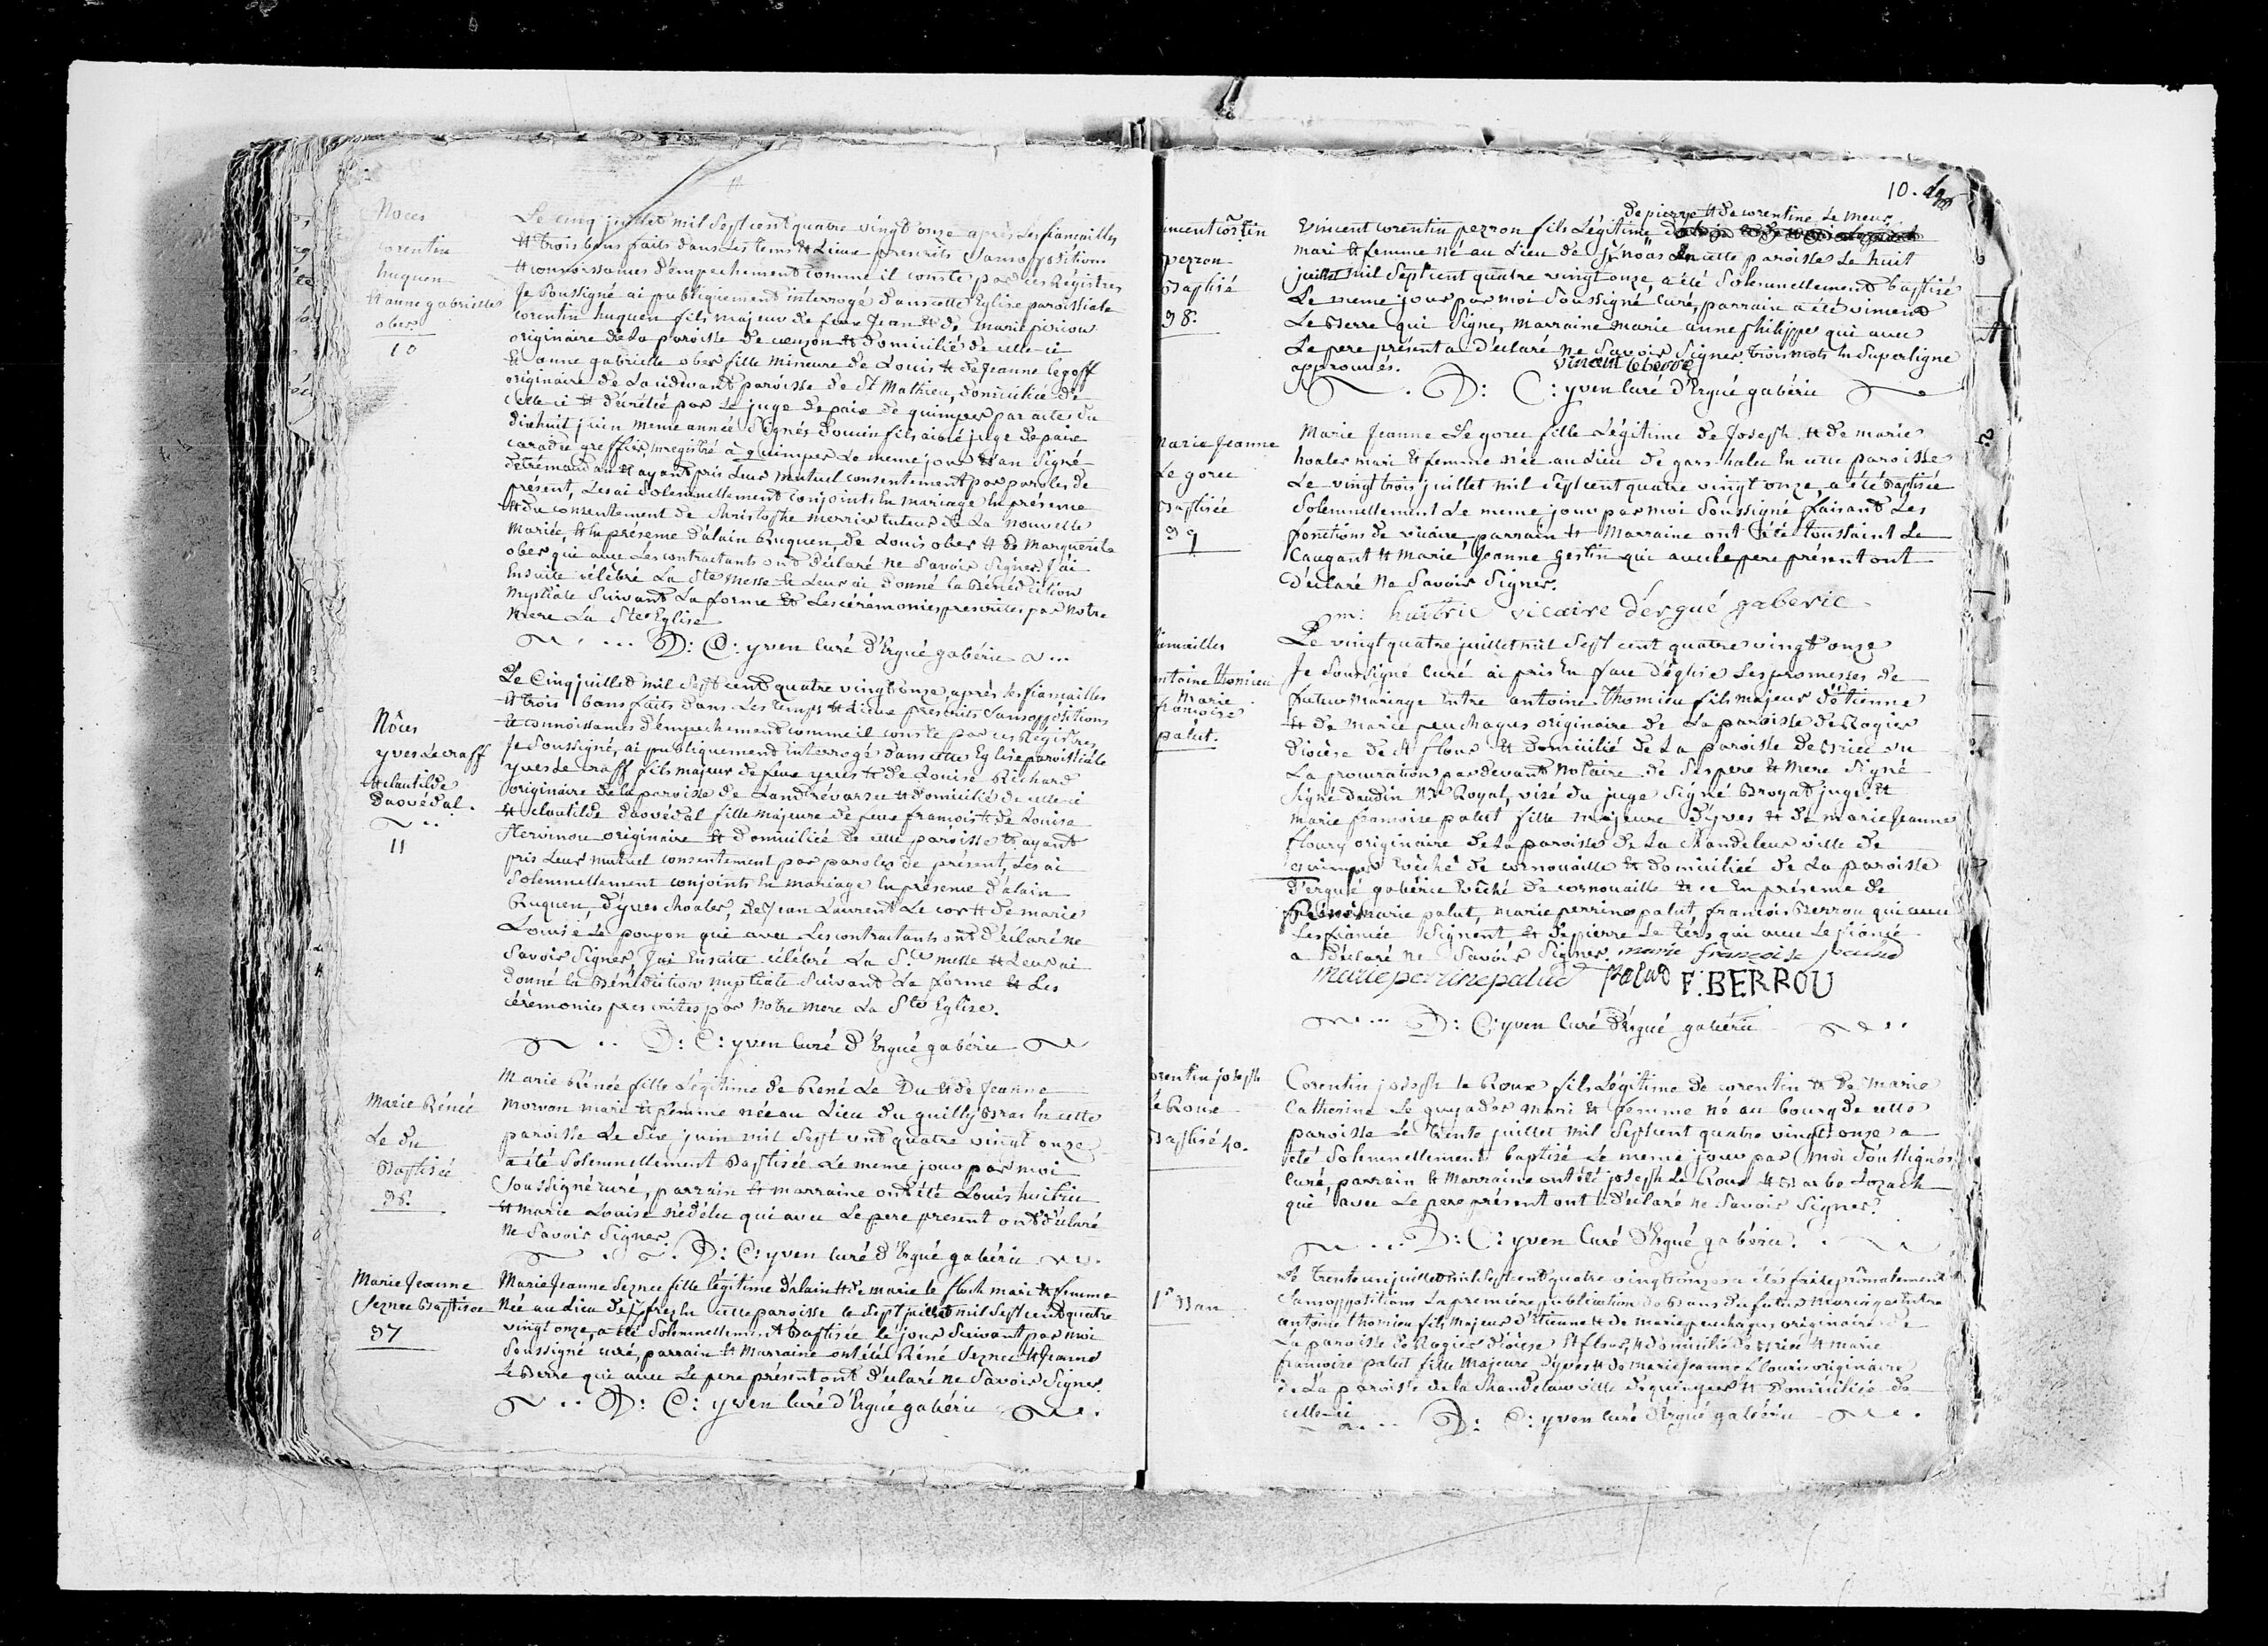 Noces
Corentin
huguen
et anne gabrielle
ober
10
Le cinq juillet mil sept cent quatre vingt onze après les fiançailles
et trois bans faits dans les tems et lieux prescrits sans oppositions
et connoissances d'empechement comme il conste par ces Régistres
Je soussigné ai publiquement interrogé dans cette Eglise paroissiale
corentin huguen fils majeur de feu Jean et de Marie piriou
originaire de la paroisse de et domicilié de celle-ci
et anne gabrielle ober fille mineure de Louis et de Jeanne legoff
originaire de la cidevant paroisse de St Mathieu, domiciliée de
celle ci et décrétée par le juge de paix de quimper par acte du
dixhuit juin meme année signés fils ainé juge de paix
greffier enregistré à quimper le meme jour et an signé
et ayant pris leur mutuel consentement par paroles de
présent, Les ai solemnellement conjoints en mariage en présence
et du consentement de christophe merrien tuteur de La nouvelle
mariée, et en présence d'alain huguen, de Louis ober et de Marguerite
ober qui avec les contractants ont déclaré ne savoir signer. J'ai
ensuite célébré La Ste Messe et leur ai donné la Bénédiction
nuptiale suivant La forme et les cérémonies prescrites par notre
mere La Ste Eglise
D: C: yven curé d'Ergué gabéric
Nôces
yves Le craff
et clautilde
daovédal.
11
Le Cinq juillet mil sept cent quatre vingt onze après les fiançailles
et trois bans faits dans Les temps et Lieux prescrits sans oppositions
et connoissances d'empechement comme il conste par ces Régistres
Je soussigné, ai publiquement interrogé dans cette Eglise paroissiale
yves Le craff fils majeur de feu yves et de Louise Richard
originaire de la paroisse de Landrévarzec et domicilié de celle-ci
et clautilde daovédal fille majeure de feu francois et de Louise
Hervinou originaire et domiciliée de cette paroisse et ayant
pris leur mutuel consentement par paroles de présent, Les ai
solemnellement conjoints en mariage en présence d'alain
huguen, d'yves hoaler, de Jean Laurent Le cor et de marie
Louise Le poupon qui avec Les contractants ont déclaré ne
savoir signer, J'ai Ensuite célébré La Ste messe et Leur ai
donné la Bénédiction nuptiale suivant La forme et Les
cérémonies prescrites par notre mere La Ste Eglise.
D: C: yven curé d'Ergué gabéric
Marie Rénée
Le du
Baptisée
36.
Marie Rénée fille Légitime de René Le Du et de Jeanne
morvan mari et femme née au Lieu du quilly bras en cette
paroisse Le six juin mil sept cent quatre vingt onze
a été solemnellement Baptisée Le meme jour par moi
soussigné curé, parrain et marraine ont été Louis huitric
et marie Louise nédélec qui avec Le pere present ont déclaré
ne savoir signer.
D: C: yven curé d'Ergué gabéric
Marie Jeanne
Seznec Baptisée
37
Marie Jeanne Seznec fille légitime d'alain et de marie le floch mari et femme
née au Lieu de en cette paroisse le sept juillet mil sept cent quatre
vingt onze, a été solemnellement Baptisée le jour suivant par moi
soussigné curé, parrain et Marraine ont été Réné Seznec et Jeanne
Le Berre qui avec Le pere présent ont déclaré ne savoir signer.
D: C: yven curé d'Ergué gabéric
10.
incent cor.tin
pezron
Baptisé
38.
de pierre et de corentine Le meur
Vincent corentin pezron fils Légitime
mari et femme né au Lieu de en cette paroisse Le huit
juillet mil sept cent quatre vingt onze, a été solemnellement baptisé
Le meme jour par moi soussigné curé, parrain a été vincent
Le Berre qui signe, marraine marie anne philippe qui avec
Le pere présent a déclaré ne savoir signer. trois mots En superligne
approuvés. vincent le berre
D: C: yven curé d'Ergué gabéric
Marie Jeanne
Le gorec
Baptisée
39
Marie Jeanne Le gorec fille Légitime de Joseph et de marie
hoaler mari et femme née au Lieu de gars-halec En cette paroisse
Le vingt trois juillet mil sept cent quatre vingt onze, a été Baptisée
solemnellement Le meme jour par moi soussigné faisant Les
fonctions de vicaire, parrain et Marraine ont été toussaint Le
Caugant et Marie Jeanne gestin qui avec le pere présent ont
déclaré ne savoir signer.
m: huitric vicaire d'ergué gaberic
iancailles
ntoine thomieu
Marie
francoise
palut.
Le vingt quatre juillet mil sept cent quatre vingt onze
Je soussigné curé ai pris En face d'église Les promesses de
futur mariage Entre antoine thomieu fils majeur d'étienne
et de marie peuchagus originaire de La paroisse de Rogier
diocèse de St flour et domicilié de La paroisse de Briec vu
La procuration pardevant notaire de ses pere et mere signé
signé daudin Nre Royal, visé du juge signé juge. et
marie francoise palut fille majeure d'yves et de marie Jeanne
floury originaire de La paroisse de La chandeleur ville de
quimper Evêché de cornouaille et domiciliée de La paroisse
d'ergué gabéric Evêché de cornouaille et ce En présence de
marie palut, marie perrine palut, francois Berrou qui avec
La fiancée signent et de pierre Le ters qui avec Le fiancé
a déclaré ne savoir signer. marie françoise palud
marie perrine palud palud F: BERROU
D: C: yven curé d'Ergué gabéric
orentin joseph
le Roux
Baptisé 40.
Corentin joseph le Roux fils Légitime de corentin et de Marie
Catherine Le guyader mari et femme né au bourg de cette
paroisse Le trente juillet mil sept cent quatre vingt onze a
été solemnellement baptisé Le meme jour par moi soussigné
curé, parrain et Marraine ont été joseph Le Roux et Barbe Lozach
qui avec Le pere présent ont déclaré ne savoir signer.
D: C: yven curé d'Ergué gabéric.
1r Ban
Le trente un juillet mil sept cent quatre vingt onze a été faite prônalement
sans oppositions La premiere publication de Bans du futur mariage Entre
antoine thomieu fils majeur d'Etienne et de Marie peuchagus originaire de
La paroisse de Rogier diocèse St flour, et domicilié de Briec et marie
francoise palut fille majeure d'yves et de marie Jeanne flouri originaire
de La paroisse de la chandeleur ville de quimper et domiciliée de
celle-ci
D: C: yven curé d'Ergué gabéric